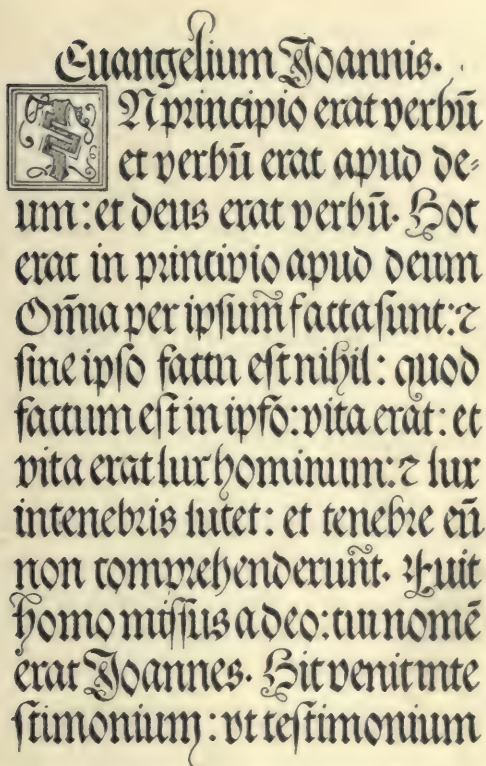 Euangelium Joannis.
IN principio erat verbū
et verbū erat apud de⸗
um: et deus erat verbū. Hoc
erat in principio apud deum
Om̄ia per ipſum facta ſunt: ⁊
ſine ipſo factu eſt nihil: quod
factum eſt in ipſo: vita erat: et
vita erat lux hominum: ⁊ lux
in tenebris lucet: et tenebre eū
non comprehenderunt. Fuit
homo miſſus a deo: cui nomē
erat Joannes. Hic venit in te
ſtimonium: vt teſtimonium